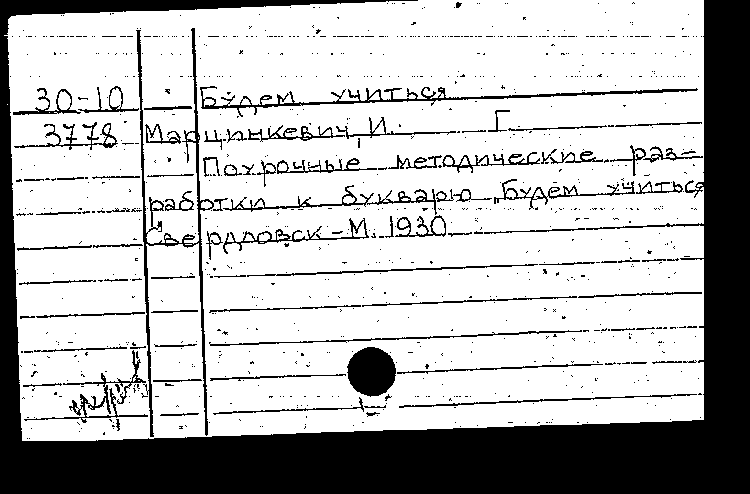 30-10 Будем учиться
3778 Марцинкевич, И. Г.
Поурочные методические раз-
работки к букварю „Будем учиться
Свердловск - М. 1930.